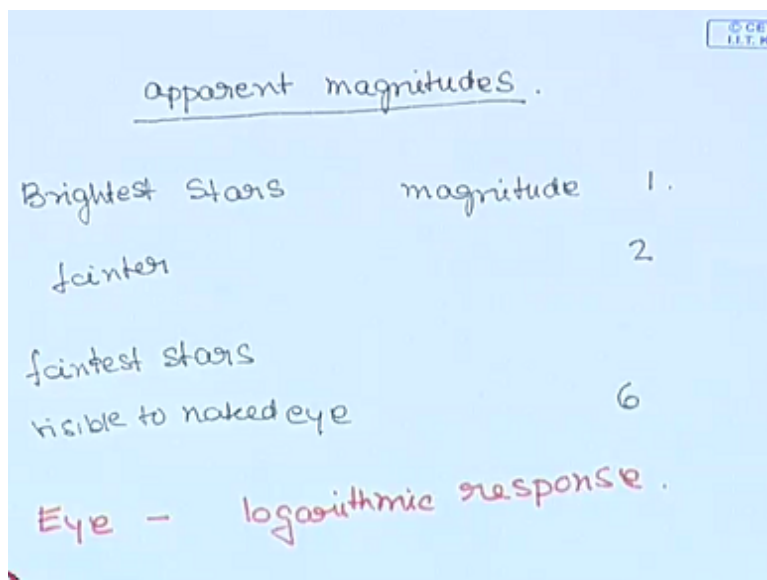 © CE
I.I.T. K
apparent magnitudes.
Brightest Stars magnitude 1.
fainter 2
faintest stars
visible to naked eye 6
Eye - logarithmic response.